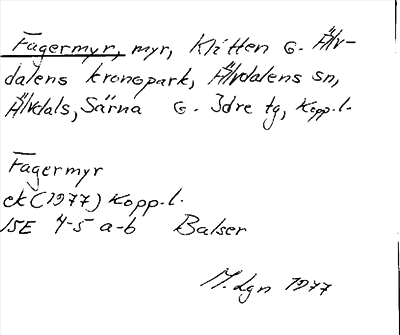 Fagermyr, myr, Klitten o. Älv-
dalens kronopark, Älvdalens sn,
Älvdals, Särna o. Idre tg, Kopp.l.
Fagermyr
ek (1977) Kopp.l.
15E 4-5 a-b Balser
M. Lgn 1977